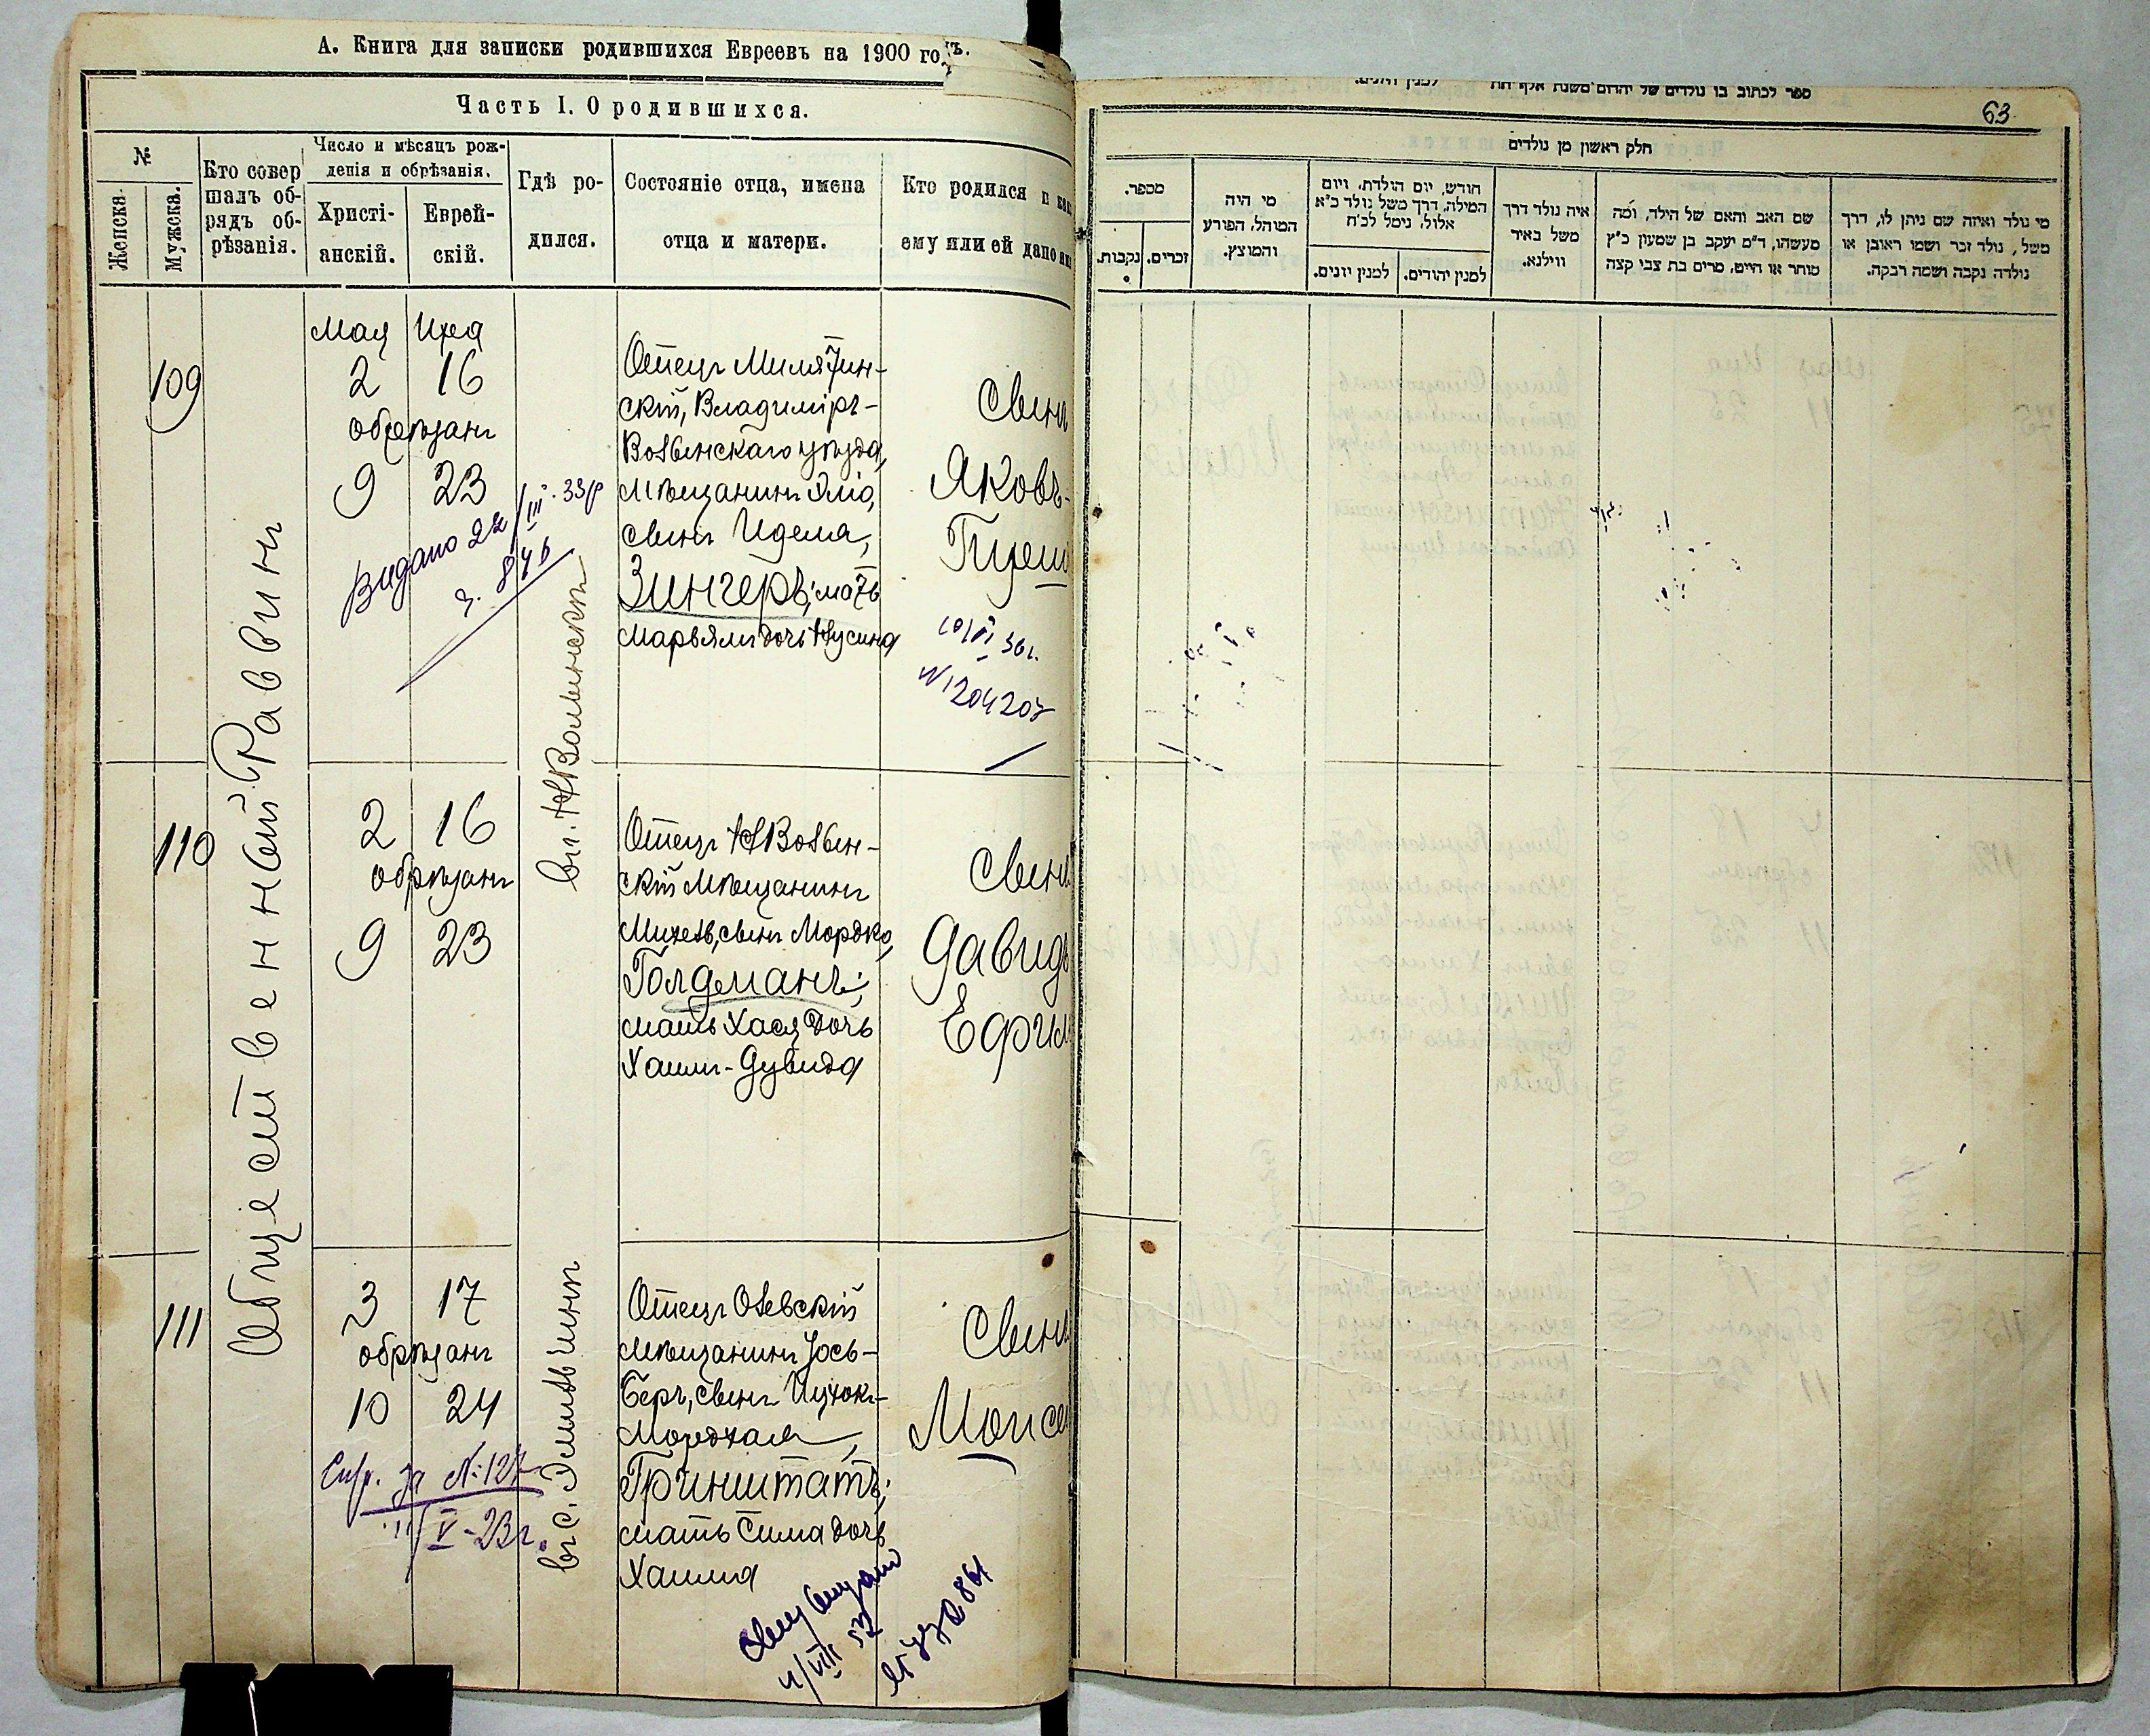 А. Книга для записки родившихся Евреевъ на 1900 годъ.
Часть I. О родившихся.
№
Женска
Мужска.
Кто совер
шалъ об-
рядъ об-
рѣзанія.
Число и мѣсяцъ рож-
денія и обрѣзанія.
Христі-
анскій.
Еврей-
скій.
Гдѣ ро-
дился.
Состояніе отца, имена
отца и матери.
Кто родился и как
ему или ей дано им
Общественный Раввинъ
109
Мая Ияра
2 16
обрѣзанъ
9 23
Видано 22/III 33р
ч. 846
въ. Н Волынскѣ
Отецъ Милятин-
скій, Владиміръ-
Волынскаго уѣзда,
мѣщанинъ Эліо,
сынъ Иделя,
Зингеръ; мать
Марьямъ дочь Нусина
Сынъ
Яковъ-
Гирш
10/VI 36г.
№ 1204207
110
2 16
обрѣзанъ
9 23
Отецъ Н Волын-
скій мѣщанинъ
Михель, сынъ Мордко,
Голдманъ;
мать Хася дочь
Хаимъ-Дувида
Сынъ
Давидъ
Ефрим
111
3 17
обрѣзанъ
10 24
Спр. за №127
11/V-23г.
въ с. Эмильчинѣ
Отецъ Олевскій
мѣщанинъ Іось-
Беръ, сынъ Ицхокъ-
Мордхая,
Гринштатъ;
мать Сима дочь
Хаима
Сынъ
Моисе
4/VIII 52
861
ספר לכתוב בו נולדים של יהודים משנת אלף תת למנין היונים.
63
חלק ראשון מן נולדים
מספר.
נקבות.
זכרים.
מי היה
המוהל, הפורע
והמוצץ.
חודש, יום הולדת, ויום
המילה, דרך משל נולד כ"א
אלול, נימל לכ"ח
למנין יונים.
למנין יהודים.
איה נולד דרך
משל באיר
ווילנא.
שם האב והאם של הילד, ומה
מעשהו, ד"מ יעקב בן שמעון כ"ץ
סוחר או חייט, מרים בת צבי קצה
מי נולד ואיזה שם ניתן לו, דרך
משל, נולד זכר ושמו ראובן או
נולדה נקבה ושמה רבקה.